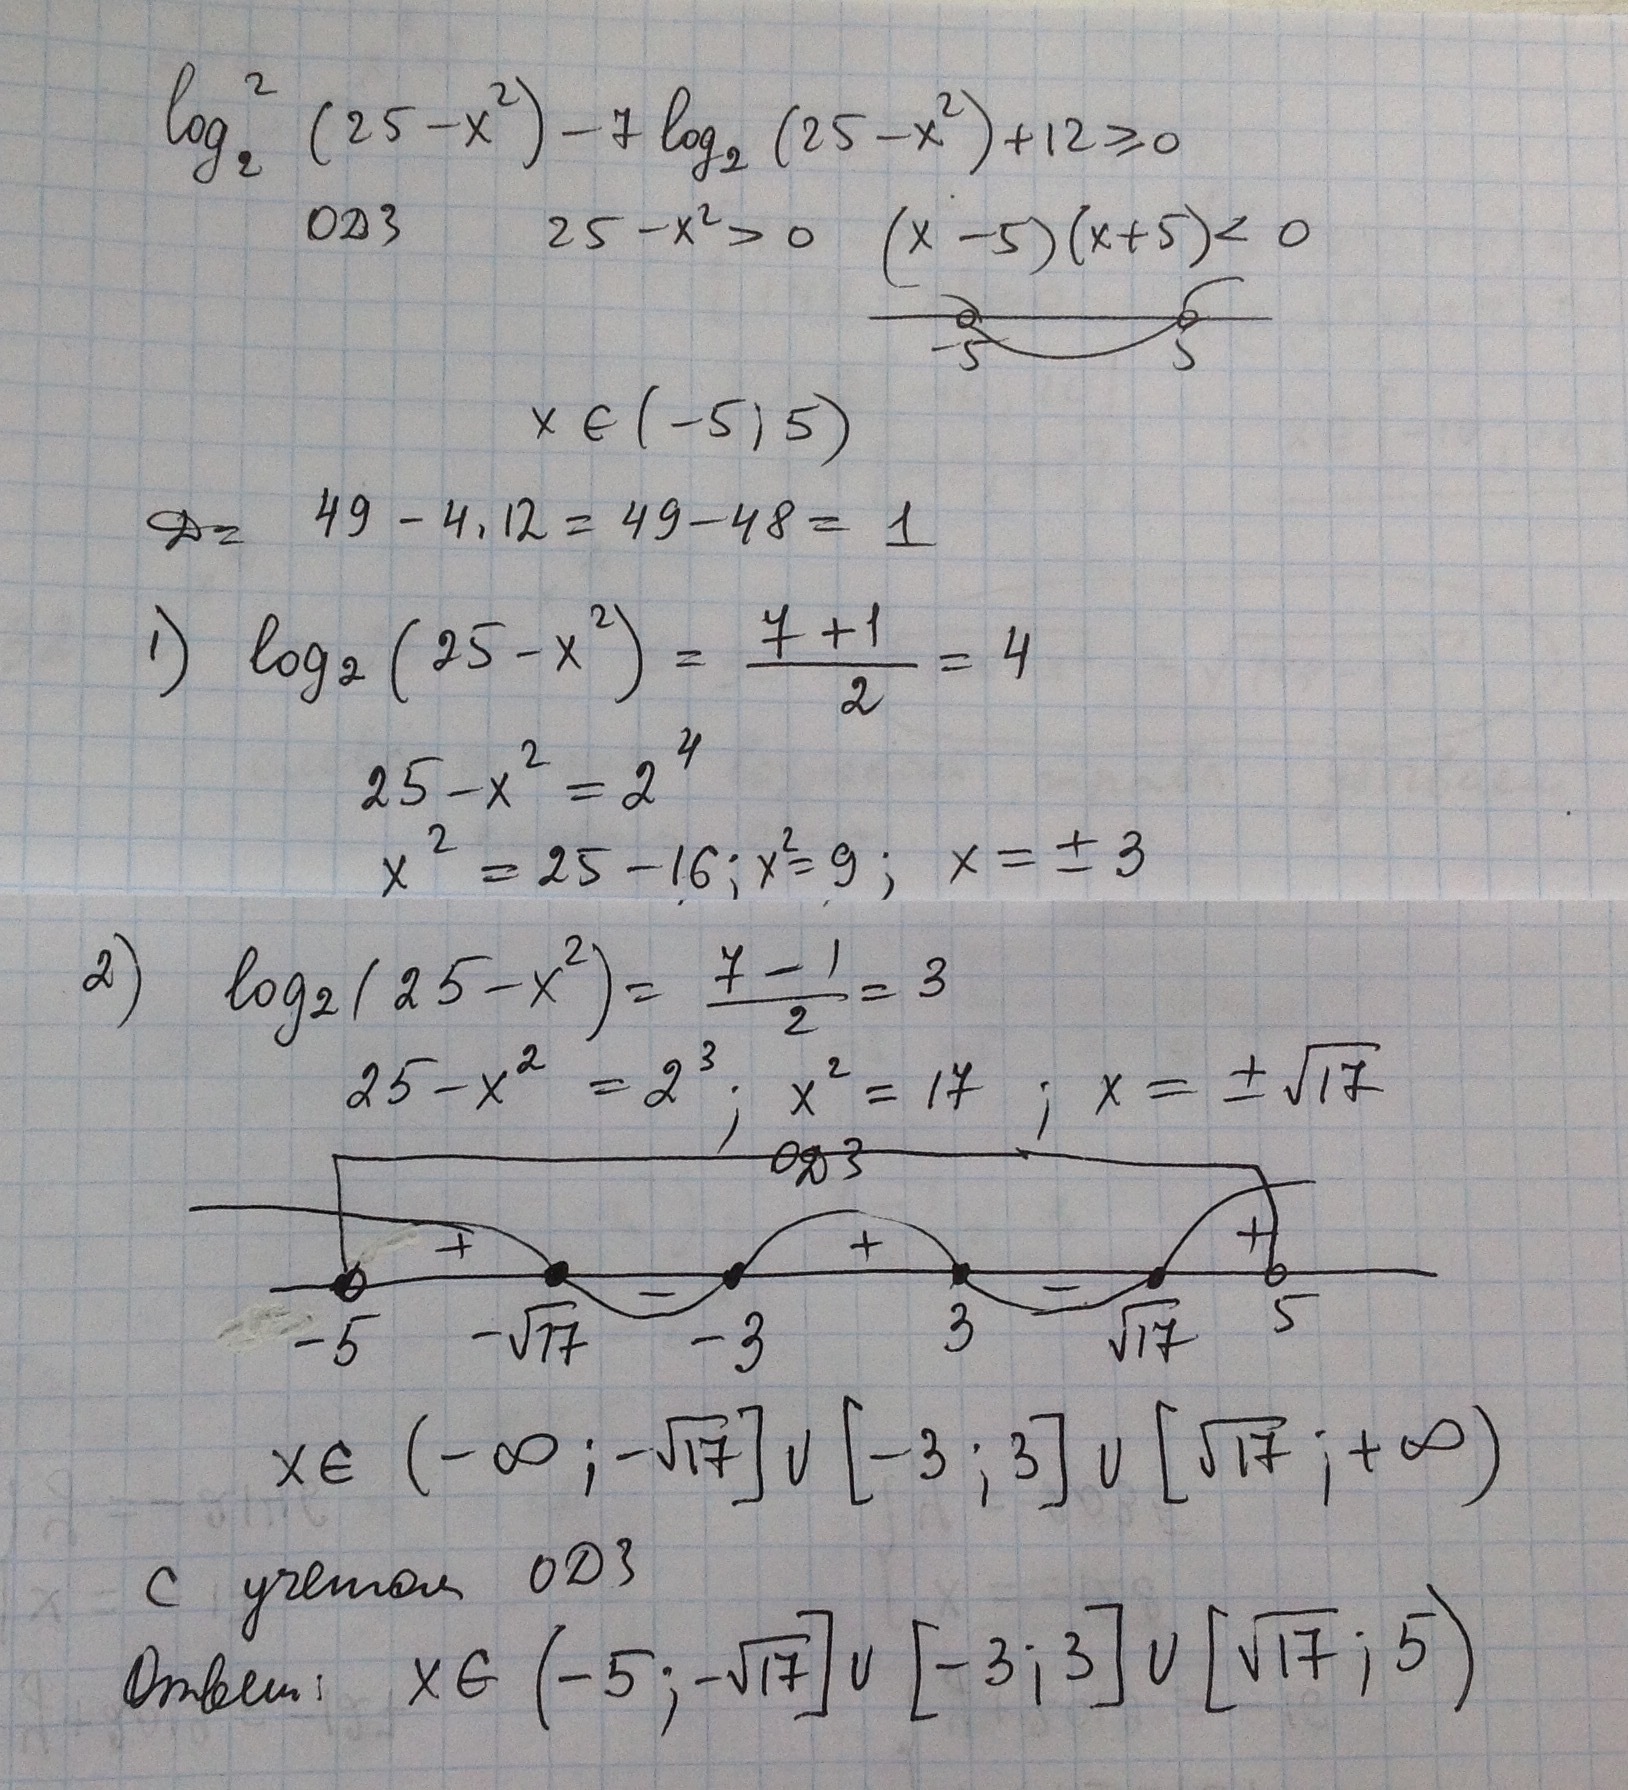 log₂² (25 – x²) – 7 log₂ (25 – x²) + 12 ≥ 0
ОДЗ 25 – x² > 0 (x – 5)(x + 5) < 0
-5 5
x ∈ (-5; 5)
D = 49 – 4·12 = 49 – 48 = 1
1) log₂ (25 – x²) = (7 + 1)/2 = 4
25 – x² = 2⁴
x² = 25 – 16; x² = 9; x = ± 3
2) log₂ (25 – x²) = (7 – 1)/2 = 3
25 – x² = 2³; x² = 17; x = ± √17
ОДЗ
+ – + – +
-5 -√17 -3 3 √17 5
x ∈ (-∞; -√17] ∪ [-3; 3] ∪ [√17; +∞)
с учетом ОДЗ
Ответ: x ∈ (-5; -√17] ∪ [-3; 3] ∪ [√17; 5)